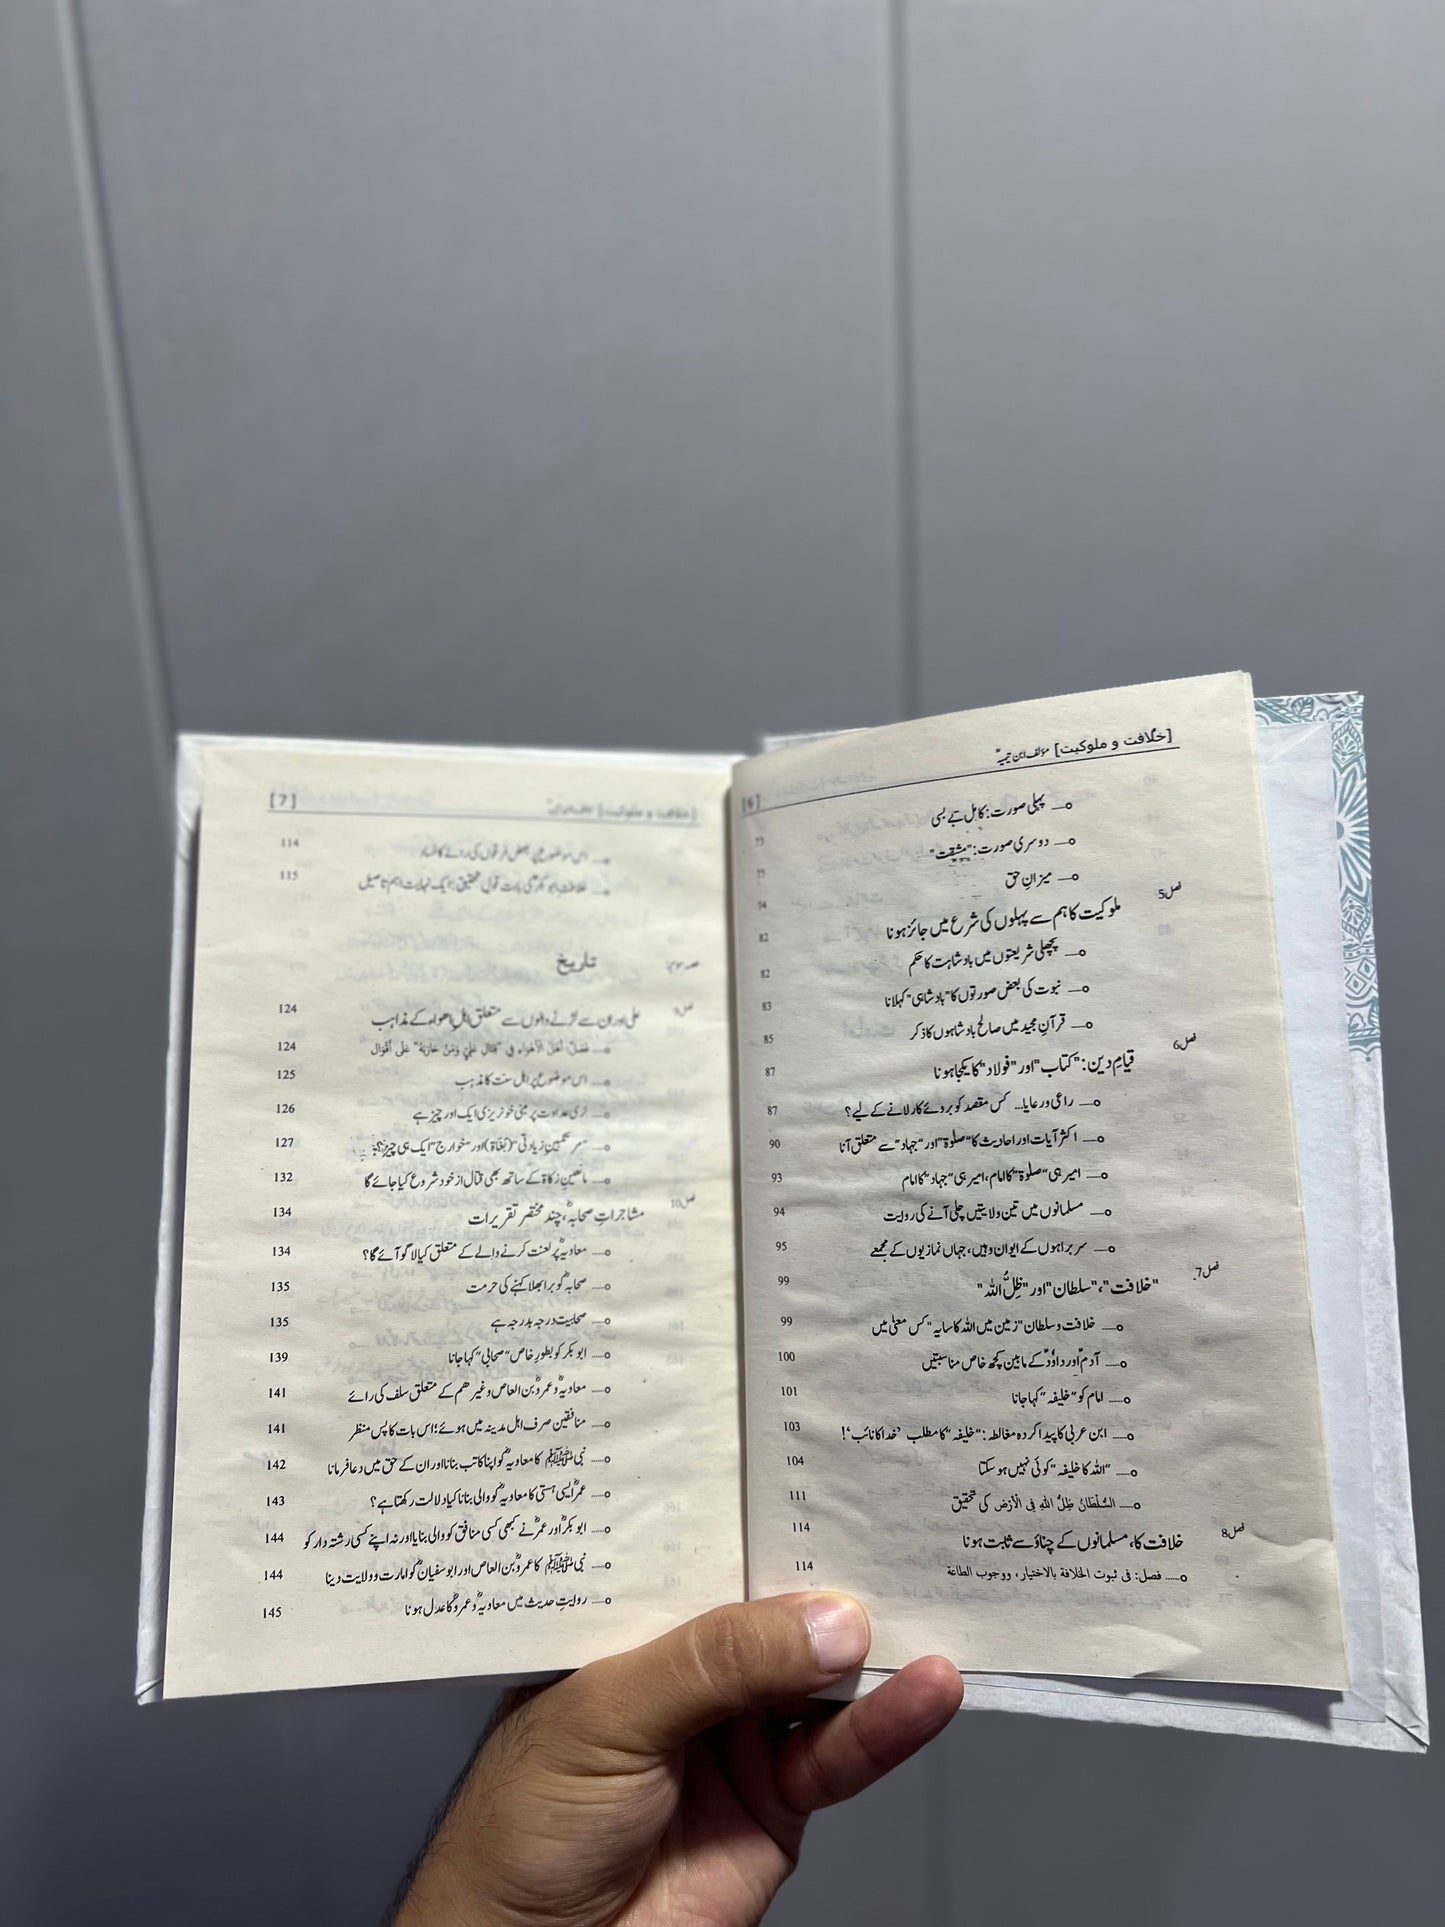 [خلافت و ملوکیت] مؤلف ابن تیمیہؒ [6]
o— پہلی صورت: کامل بے بسی 73
o— دوسری صورت: "مشقت"
o— میزانِ حق
فصل5 ملوکیت کا ہم سے پہلوں کی شرع میں جائز ہونا 82
o— پچھلی شریعتوں میں بادشاہت کا حکم 82
o— نبوت کی بعض صورتوں کا "بادشاہی" کہلانا 83
o— قرآنِ مجید میں صالح بادشاہوں کا ذکر 85
فصل6 قیامِ دین: "کتاب" اور "فولاد" کا یکجا ہونا 87
o— راعی و رعایا... کس مقصد کو بروئے کار لانے کے لیے؟ 87
o— اکثر آیات اور احادیث کا "صلوٰۃ" اور "جہاد" سے متعلق آنا 90
o— امیر ہی "صلوٰۃ" کا امام، امیر ہی "جہاد" کا امام 93
o— مسلمانوں میں تین ولایتیں چلی آنے کی روایت 94
o— سربراہوں کے ایوان وہیں، جہاں نمازیوں کے مجمعے 95
فصل7. "خلافت"، "سلطان" اور "ظِلُّ اللہ" 99
o— خلافت و سلطان "زمین میں اللہ کا سایہ" کس معنیٰ میں 99
o— آدمؑ اور داؤدؑ کے مابین کچھ خاص مناسبتیں 100
o— امام کو "خلیفہ" کہا جانا 101
o— ابن عربی کا پیدا کردہ مغالطہ: "خلیفہ" کا مطلب 'خدا کا نائب'! 103
o— "اللہ کا خلیفہ" کوئی نہیں ہو سکتا 104
o— السُّلْطَانُ ظِلُّ اللهِ فِی الْأَرْضِ کی تحقیق 111
فصل8 خلافت کا، مسلمانوں کے چناؤ سے ثابت ہونا 114
o— فصل: فی ثبوت الخلافة بالاختیار، ووجوب الطاعة 114
[خلافت و ملوکیت] [7]
o— اس موضوع پر بعض فرقوں کی رائے کا فساد 114
o— خلافتِ ابو بکرؓ کی بابت قولِ تحقیق: ایک نہایت اہم تاصیل 115
تاریخ
فصل9 علی اور ان سے لڑنے والوں سے متعلق اہلِ اھواء کے مذاہب 124
o— فصل: أهل الأهواء فی "قتال علي ومن حاربه" على أقوال 124
o— اس موضوع پر اہل سنت کا مذہب 125
o— نری عداوت پر مبنی خونریزی ایک اور چیز ہے 126
o— "مرتکبینِ زیادتی" (بُغَاۃ) اور "خوارج" ایک ہی چیز؟ 127
o— مانعینِ زکاۃ کے ساتھ بھی قتال از خود شروع کیا جائے گا 132
فصل10 مشاجراتِ صحابہؓ، چند مختصر تقریرات 134
o— معاویہؓ پر لعنت کرنے والے کے متعلق کیا لاگو آئے گا؟ 134
o— صحابہؓ کو برا بھلا کہنے کی حرمت 135
o— صحابیت درجہ بدرجہ ہے 135
o— ابو بکر کو بطورِ خاص "صحابی" کہا جانا 139
o— معاویہؓ و عمروؓ بن العاص وغیرھم کے متعلق سلف کی رائے 141
o— منافقین صرف اہل مدینہ میں ہوئے؛ اس بات کا پس منظر 141
o— نبی ﷺ کا معاویہؓ کو اپنا کاتب بنانا اور ان کے حق میں دعا فرمانا 142
o— عمرؓ ایسی ہستی کا معاویہؓ کو والی بنانا کیا دلالت رکھتا ہے؟ 143
o— ابو بکرؓ اور عمرؓ نے کبھی کسی منافق کو والی بنایا اور نہ اپنے کسی رشتہ دار کو 144
o— نبی ﷺ کا عمروؓ بن العاص اور ابو سفیانؓ کو امارت و ولایت دینا 144
o— روایتِ حدیث میں معاویہؓ و عمروؓ کا عدل ہونا 145